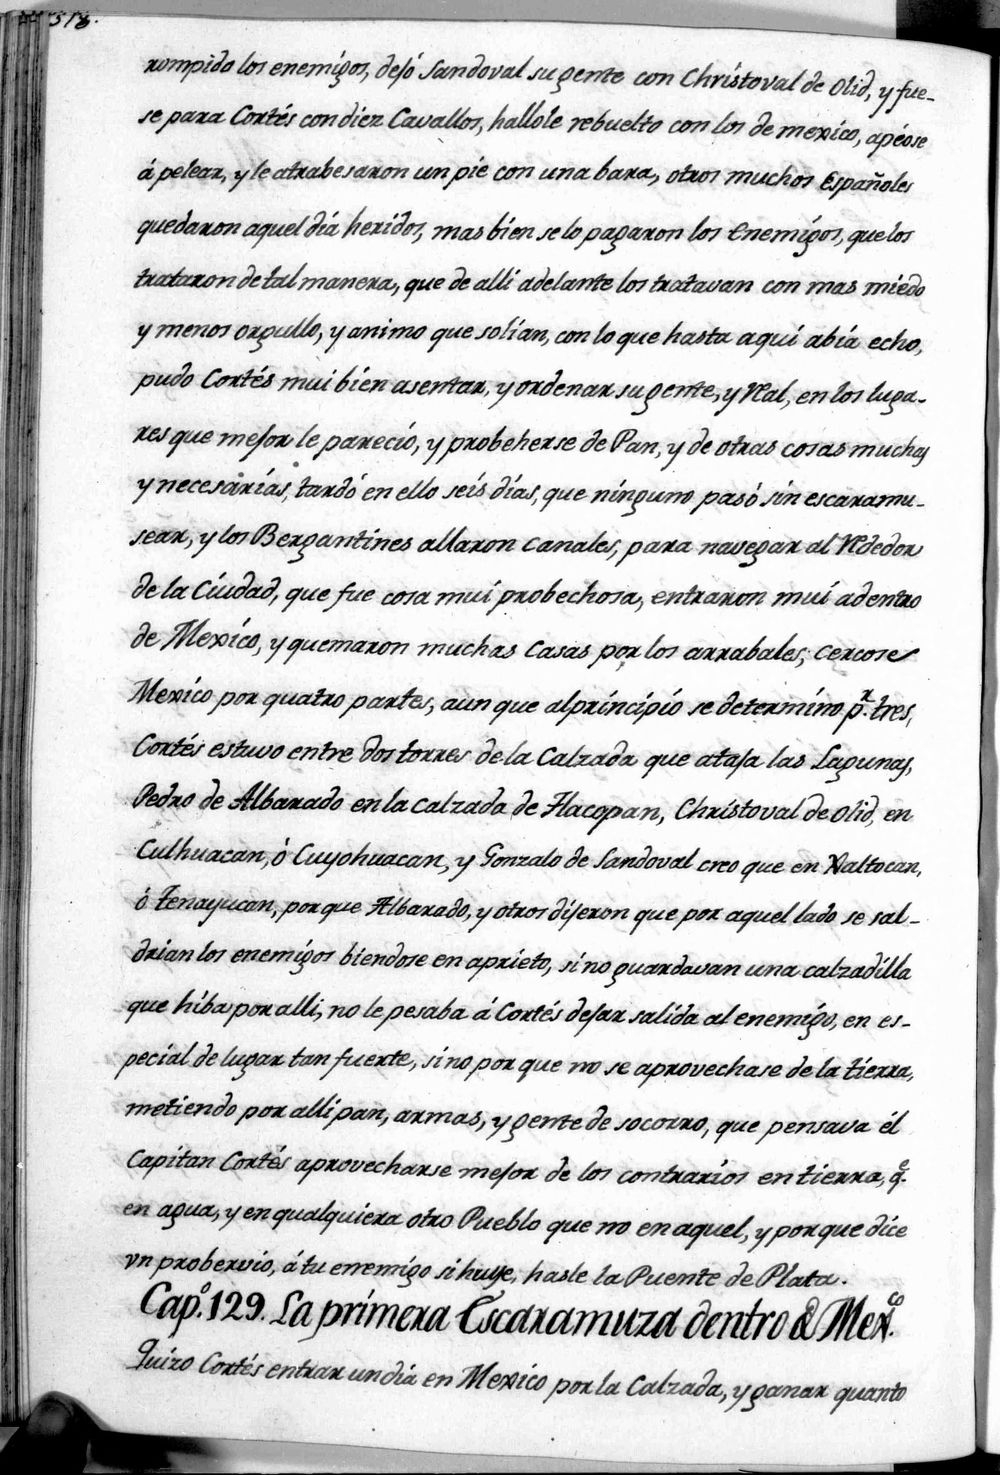 318.
rompido los enemigos, dejó Sandoval su gente con Christoval de Olid, y fue-
se para Cortés con diez Cavallos, hallole rebuelto con los de mexico, apéose
á pelear, y le atrabesaron un pie con una bara, otros muchos Españoles
quedaron aquel diá heridos, mas bien se lo pagaron los Enemigos, que los
trataron de tal manera, que de alli adelante los tratavan con mas miedo
y menos orgullo, y animo que solian, con lo que hasta aqui abia echo,
pudo Cortés mui bien asentar, y ordenar su gente, y Real, en los luga-
res que mejor le pareció, y probeherse de Pan, y de otras cosas muchas
y necesarias, tardó en ello seis dias, que ninguno pasó sin escaramu-
sear, y los Bergantines allaron canales, para navegar al Rededor
de la Ciudad, que fue cosa mui probechosa, entraron mui adentro
de Mexico, y quemaron muchas casas por los arrabales, cercose
Mexico por quatro partes, aun que al principio se determino pr. tres,
Cortés estuvo entre dos torres de la Calzada que ataja las Lagunas,
Pedro de Albarado en la calzada de Tlacopan, Christoval de Olid, en
Culhuacan, ó Cuyohuacan, y Gonzalo de Sandoval creo que en Xaltocan,
ó Tenayucan, porque Albarado, y otros dijeron que por aquel lado se sal-
drian los enemigos biendose en aprieto, si no guardavan una calzadilla
que hiba por alli, no le pesaba á Cortés dejar salida al enemigo, en es-
pecial de lugar tan fuerte, sino por que no se aprovechase de la tierra,
metiendo por alli pan, armas, y gente de socorro, que pensava él
Capitan Cortés aprovecharse mejor de los contrarios en tierra, qe.
en agua, y en qualquiera otro Pueblo que no en aquel, y porque dice
vn probervio, á tu enemigo si huye, hasle la Puente de Plata.
Capo. 129. La primera Escaramuza dentro de Mexco.
Quizo Cortés entrar un dia en Mexico por la Calzada, y ganar quanto